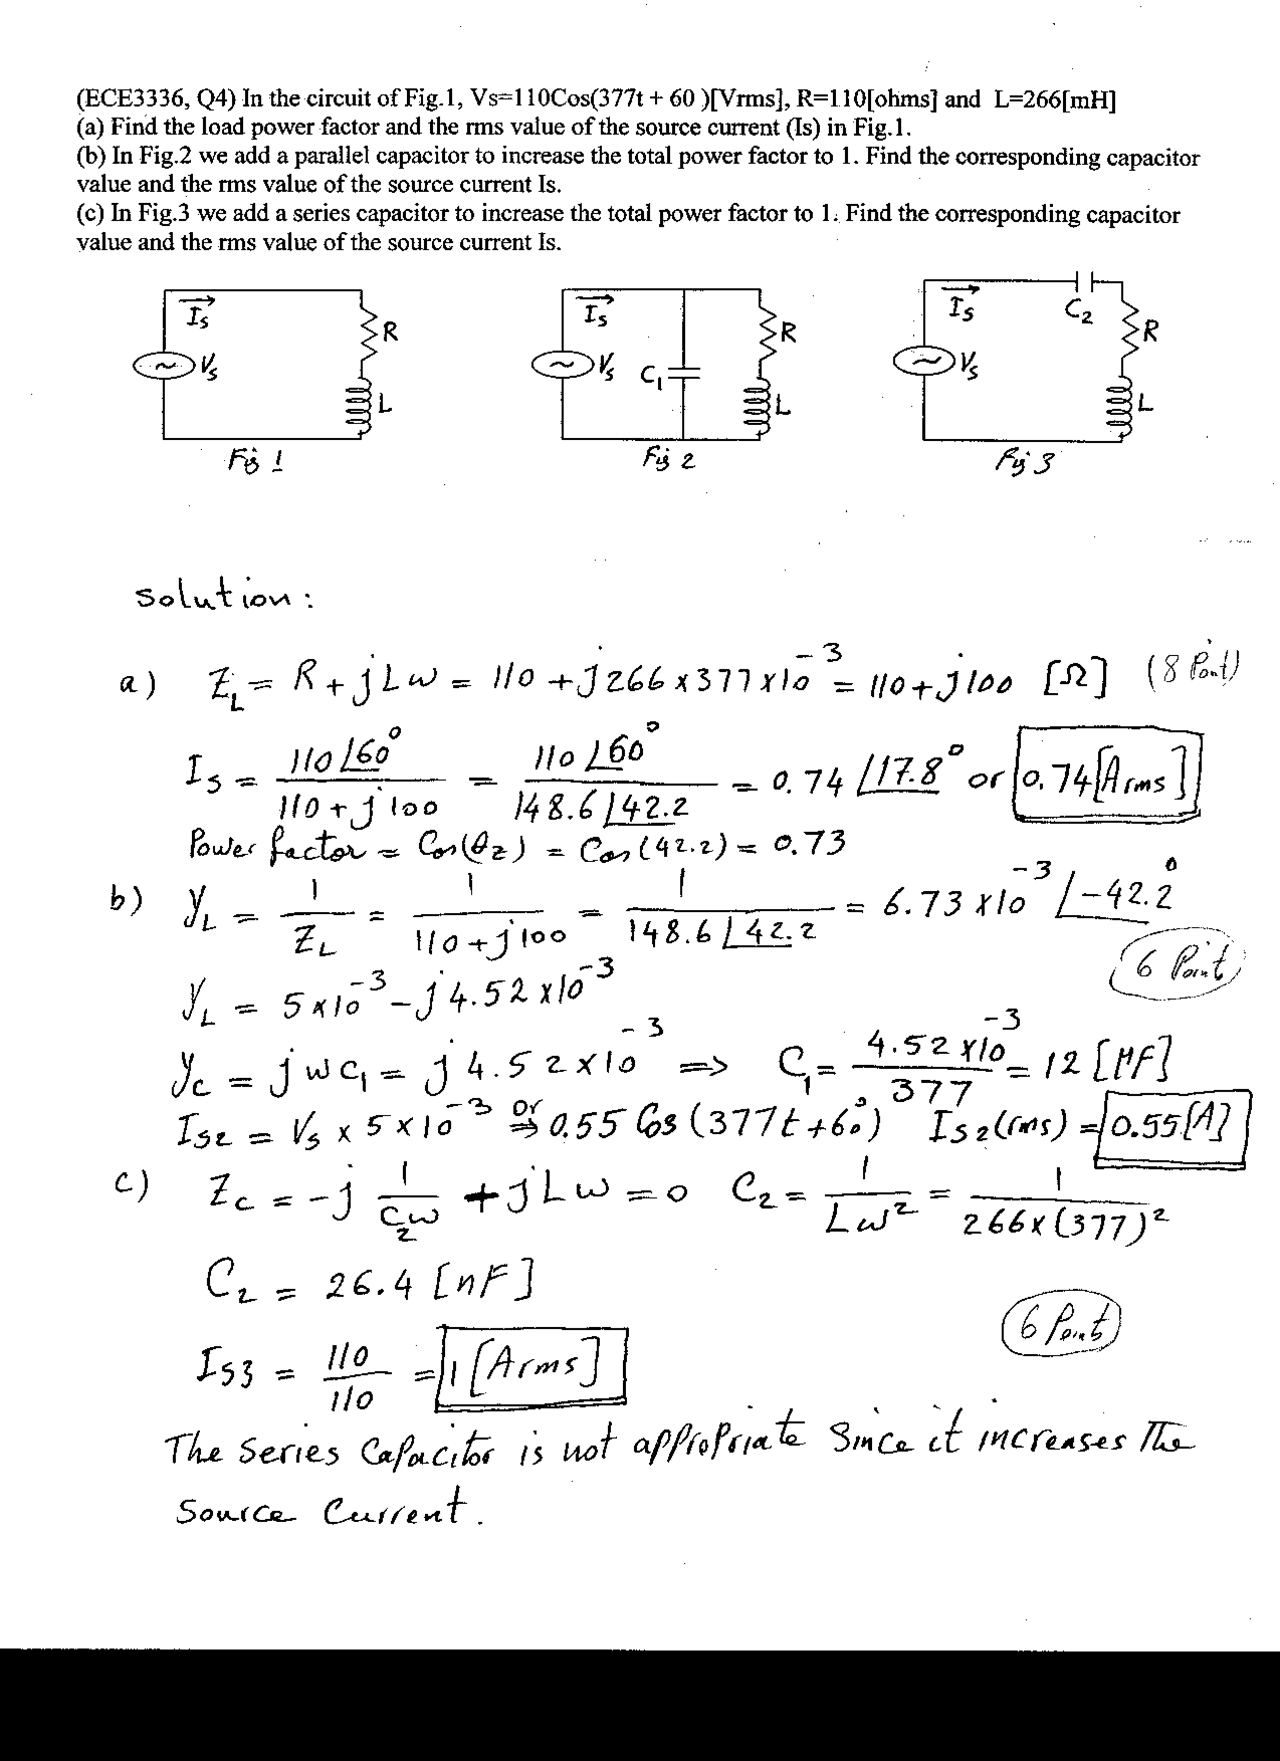 (ECE3336, Q4) In the circuit of Fig.1, Vs=110Cos(377t + 60 )[Vrms], R=110[ohms] and L=266[mH]
(a) Find the load power factor and the rms value of the source current (Is) in Fig.1.
(b) In Fig.2 we add a parallel capacitor to increase the total power factor to 1. Find the corresponding capacitor
value and the rms value of the source current Is.
(c) In Fig.3 we add a series capacitor to increase the total power factor to 1. Find the corresponding capacitor
value and the rms value of the source current Is.
Is R Vs L
Fig 1
Is R Vs C1 L
Fig 2
Is C2 R Vs L
Fig 3
Solution:
a) ZL = R + jLω = 110 + j266x377x10^-3 = 110 + j100 [Ω] (8 Point)
Is = 110∠60° / (110 + j100) = 110∠60° / 148.6∠42.2 = 0.74∠17.8° or 0.74[Arms]
Power factor = Cos(θz) = Cos(42.2) = 0.73
b) YL = 1/ZL = 1/(110+j100) = 1/(148.6∠42.2) = 6.73 x10^-3 ∠-42.2°
6 Point
YL = 5x10^-3 - j4.52x10^-3
Yc = jωC1 = j4.52x10^-3 => C1 = 4.52x10^-3 / 377 = 12 [MF]
Is2 = Vs x 5x10^-3 or => 0.55 Cos(377t+60°) Is2(rms) = 0.55[A]
c) Zc = -j 1/(C2ω) + jLω = 0 C2 = 1/(Lω^2) = 1/(266x(377)^2)
C2 = 26.4 [nF]
6 Point
Is3 = 110/110 = 1[Arms]
The Series Capacitor is not appropriate Since it increases The
Source Current.